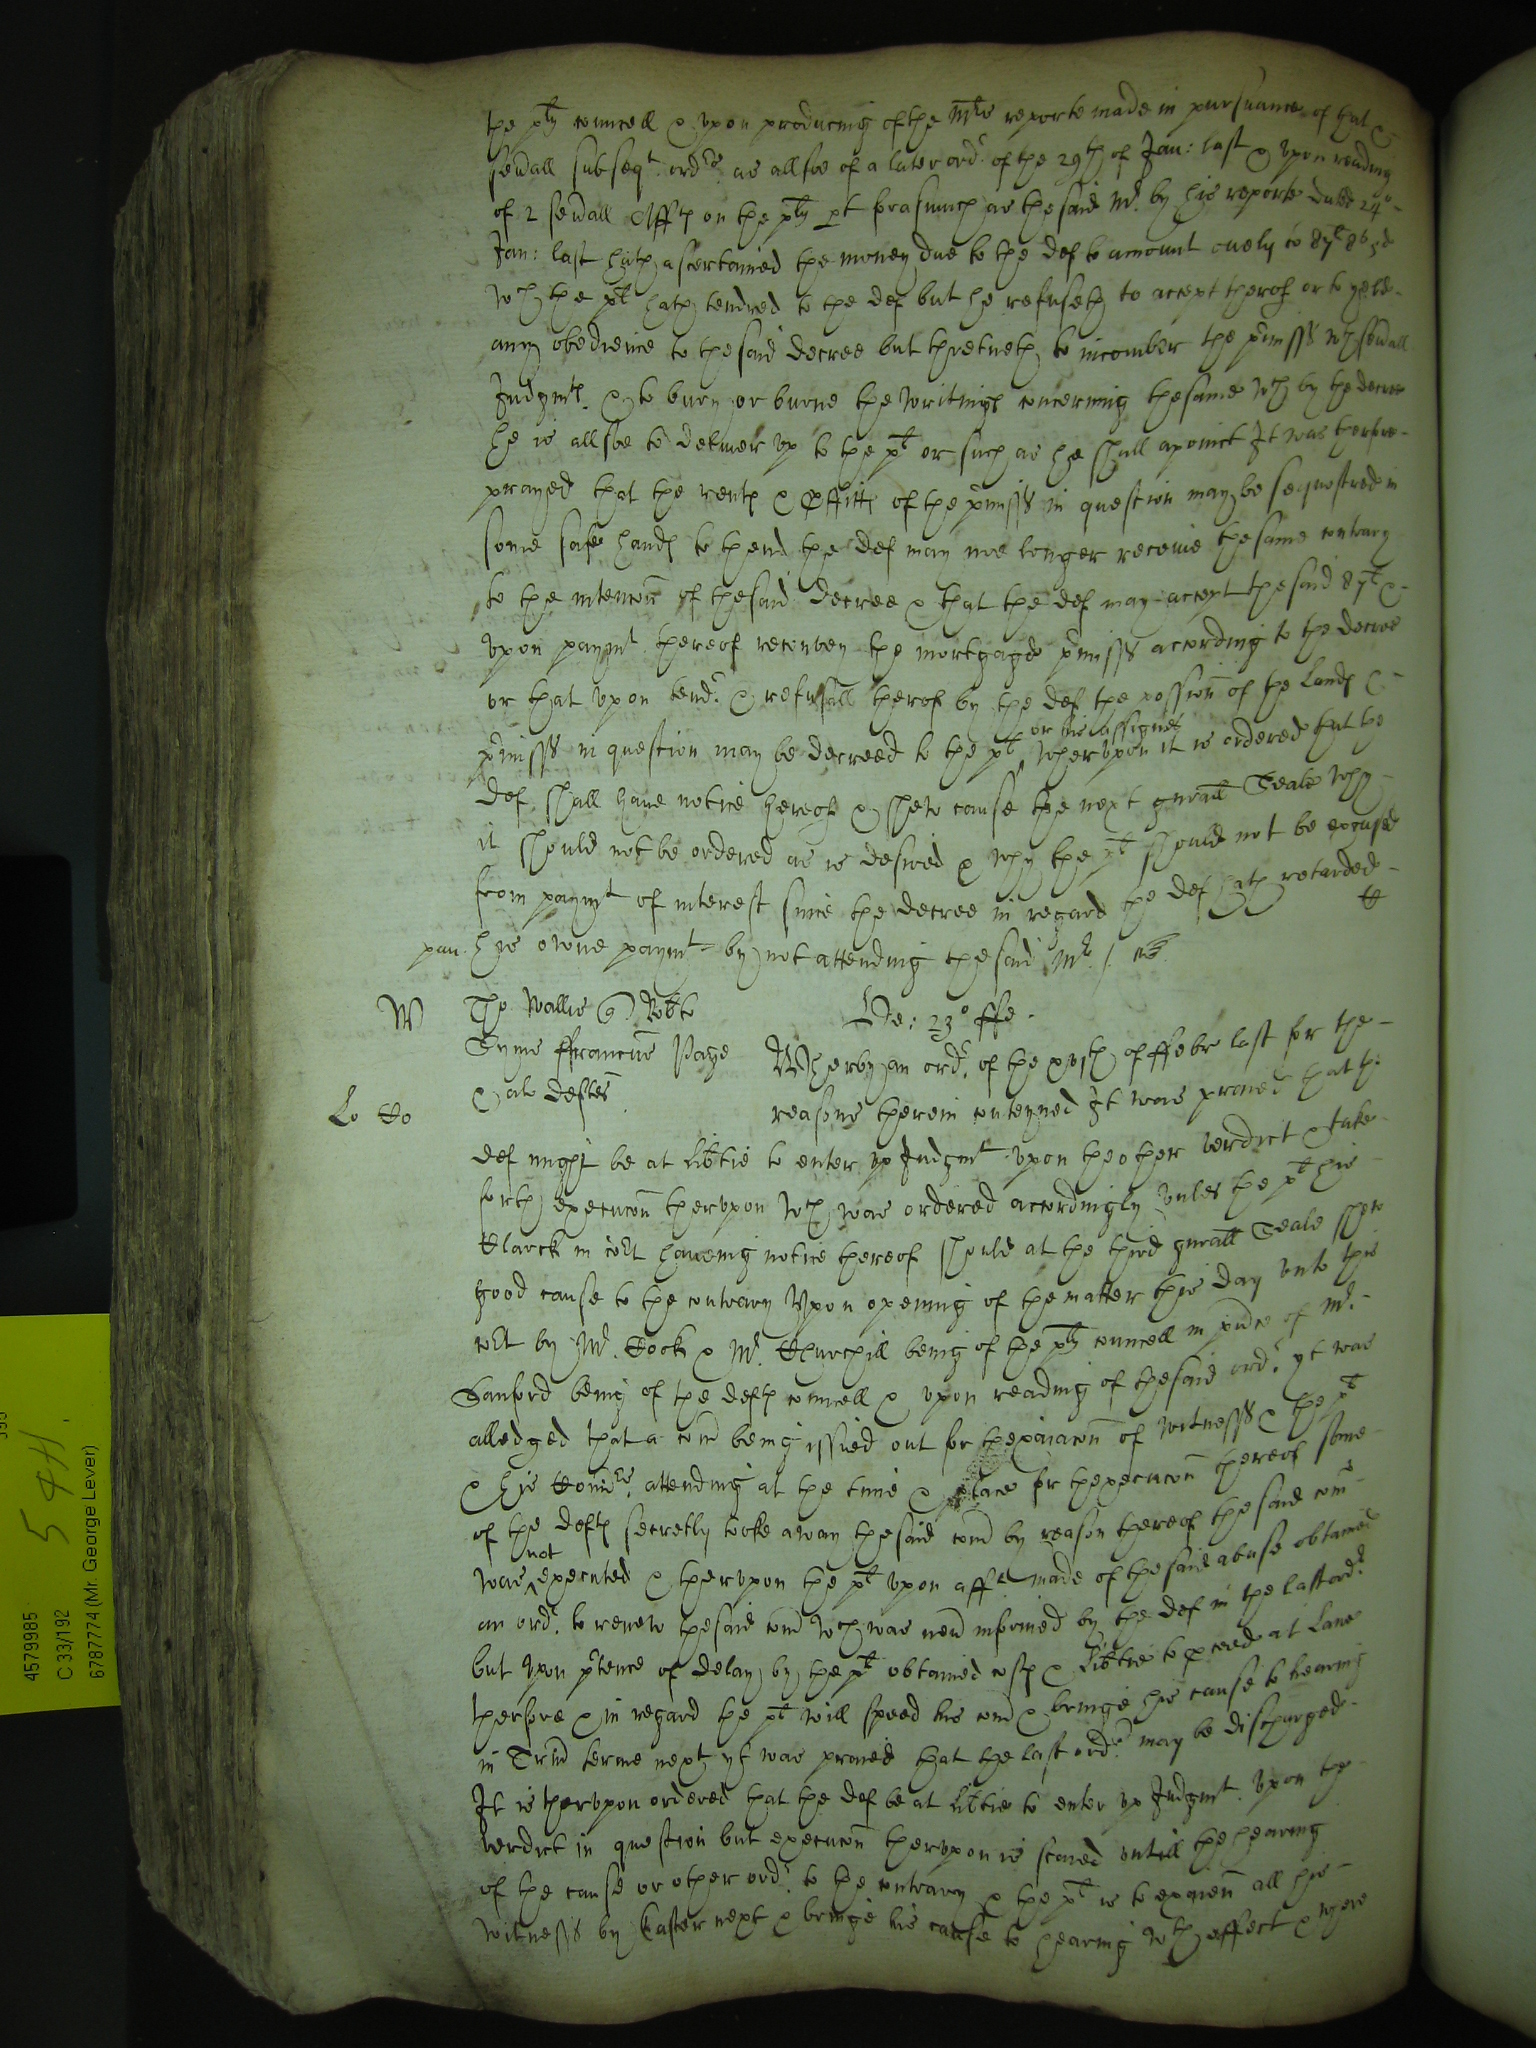 the plts councell & upon producing of the Mrs reporte made in pursuance of that &
seuall subseqt ordrs as allsoe of a later ordr of the 29th of Jan: last & upon reading
of 2 seuall Affts on the plts pt forasmuch as the said Mr. by his reporte dated 24o
Jan: last hath ascertained the money due to the def to amount onely to 87l 8s 3d
wch the plt hath tendred to the def but he refuseth to accept therof or to yeld
any obedience to the said decree but thretneth to incomber the pmisss wth seuall
Judgmts. & to bury or burne the writings concerning the same wch by the decree
he is allsoe to deliver up to the plt or such as he shall apoinct It was therfore
prayed that the rents & pffitts of the pmisss in question may be sequestred in
some safe hands to thend the def may noe longer receive the same contrary
to the intencon of the said decree & that the def may accept the said 87l &
upon paymt thereof reconvey the mortgaged pmisss according to the decree
or that upon tendr & refusall therof by the def the possion of the lands &
pmisss in question may be decreed to the plt or his assignes Wherupon it is ordered that the
def shall have notice hereof & shew cause the next gnrall Seale why
it should not be ordered as is desired & why the plt should not be excused
from paymt of interest since the decree in regard the def hath retarded
pau. his owne paymt by not attending the said Mr /.
W Tho Wallis Robto
Syms ffrancus Page
& als deftes
De: 23o ffe.
Lo Ho
Wherby an ordr. of the xvith of ffebr last for the
reasons therein conteyned It was praied that the
def might be at libtie to enter up Judgmt upon the other verdict & take
forth execucon therupon wch was ordered accordingly unles the plt his
Clarck in Cort haveing notice thereof should at the third gnrall Seale shew
good cause to the contrary Upon opening of the matter this day unto this
Cort by Mr. Cook & Mr. Churchill being of the plts councell in pnce of Mr.
Sanford being of the defts councell & upon reading of the said ordr. yt was
alledged that a com being issued out for thexaiacon of witnesss & the plt
& his Comrs. attending at the time & place for thexecucon thereof some
of the defts secretly tooke away the said com by reason thereof the said com
was not executed & therupon the plt upon afft made of the said abuse obtained
an ordr. to renew the said com wch was nevr informed by the def in the last ordr.
but upon ptence of delay by the plt obtained costs & libtie to pceed at lawe
therfore & in regard the plt will speed his com & bringe his cause to hearing
in Trin terme next yt was praied that the last ordr. may be discharged
It is therupon ordered that the def be at libtie to enter up Judgmt upon the
verdict in question but execucon therupon is staied untill the hearing
of the cause or other ordr. to the contrary & the plt is to examen all his
witnesss by Easter next & bringe his cause to hearing wth effect & were
4579985
C 33/192
6787774 (Mr. George Lever)
544